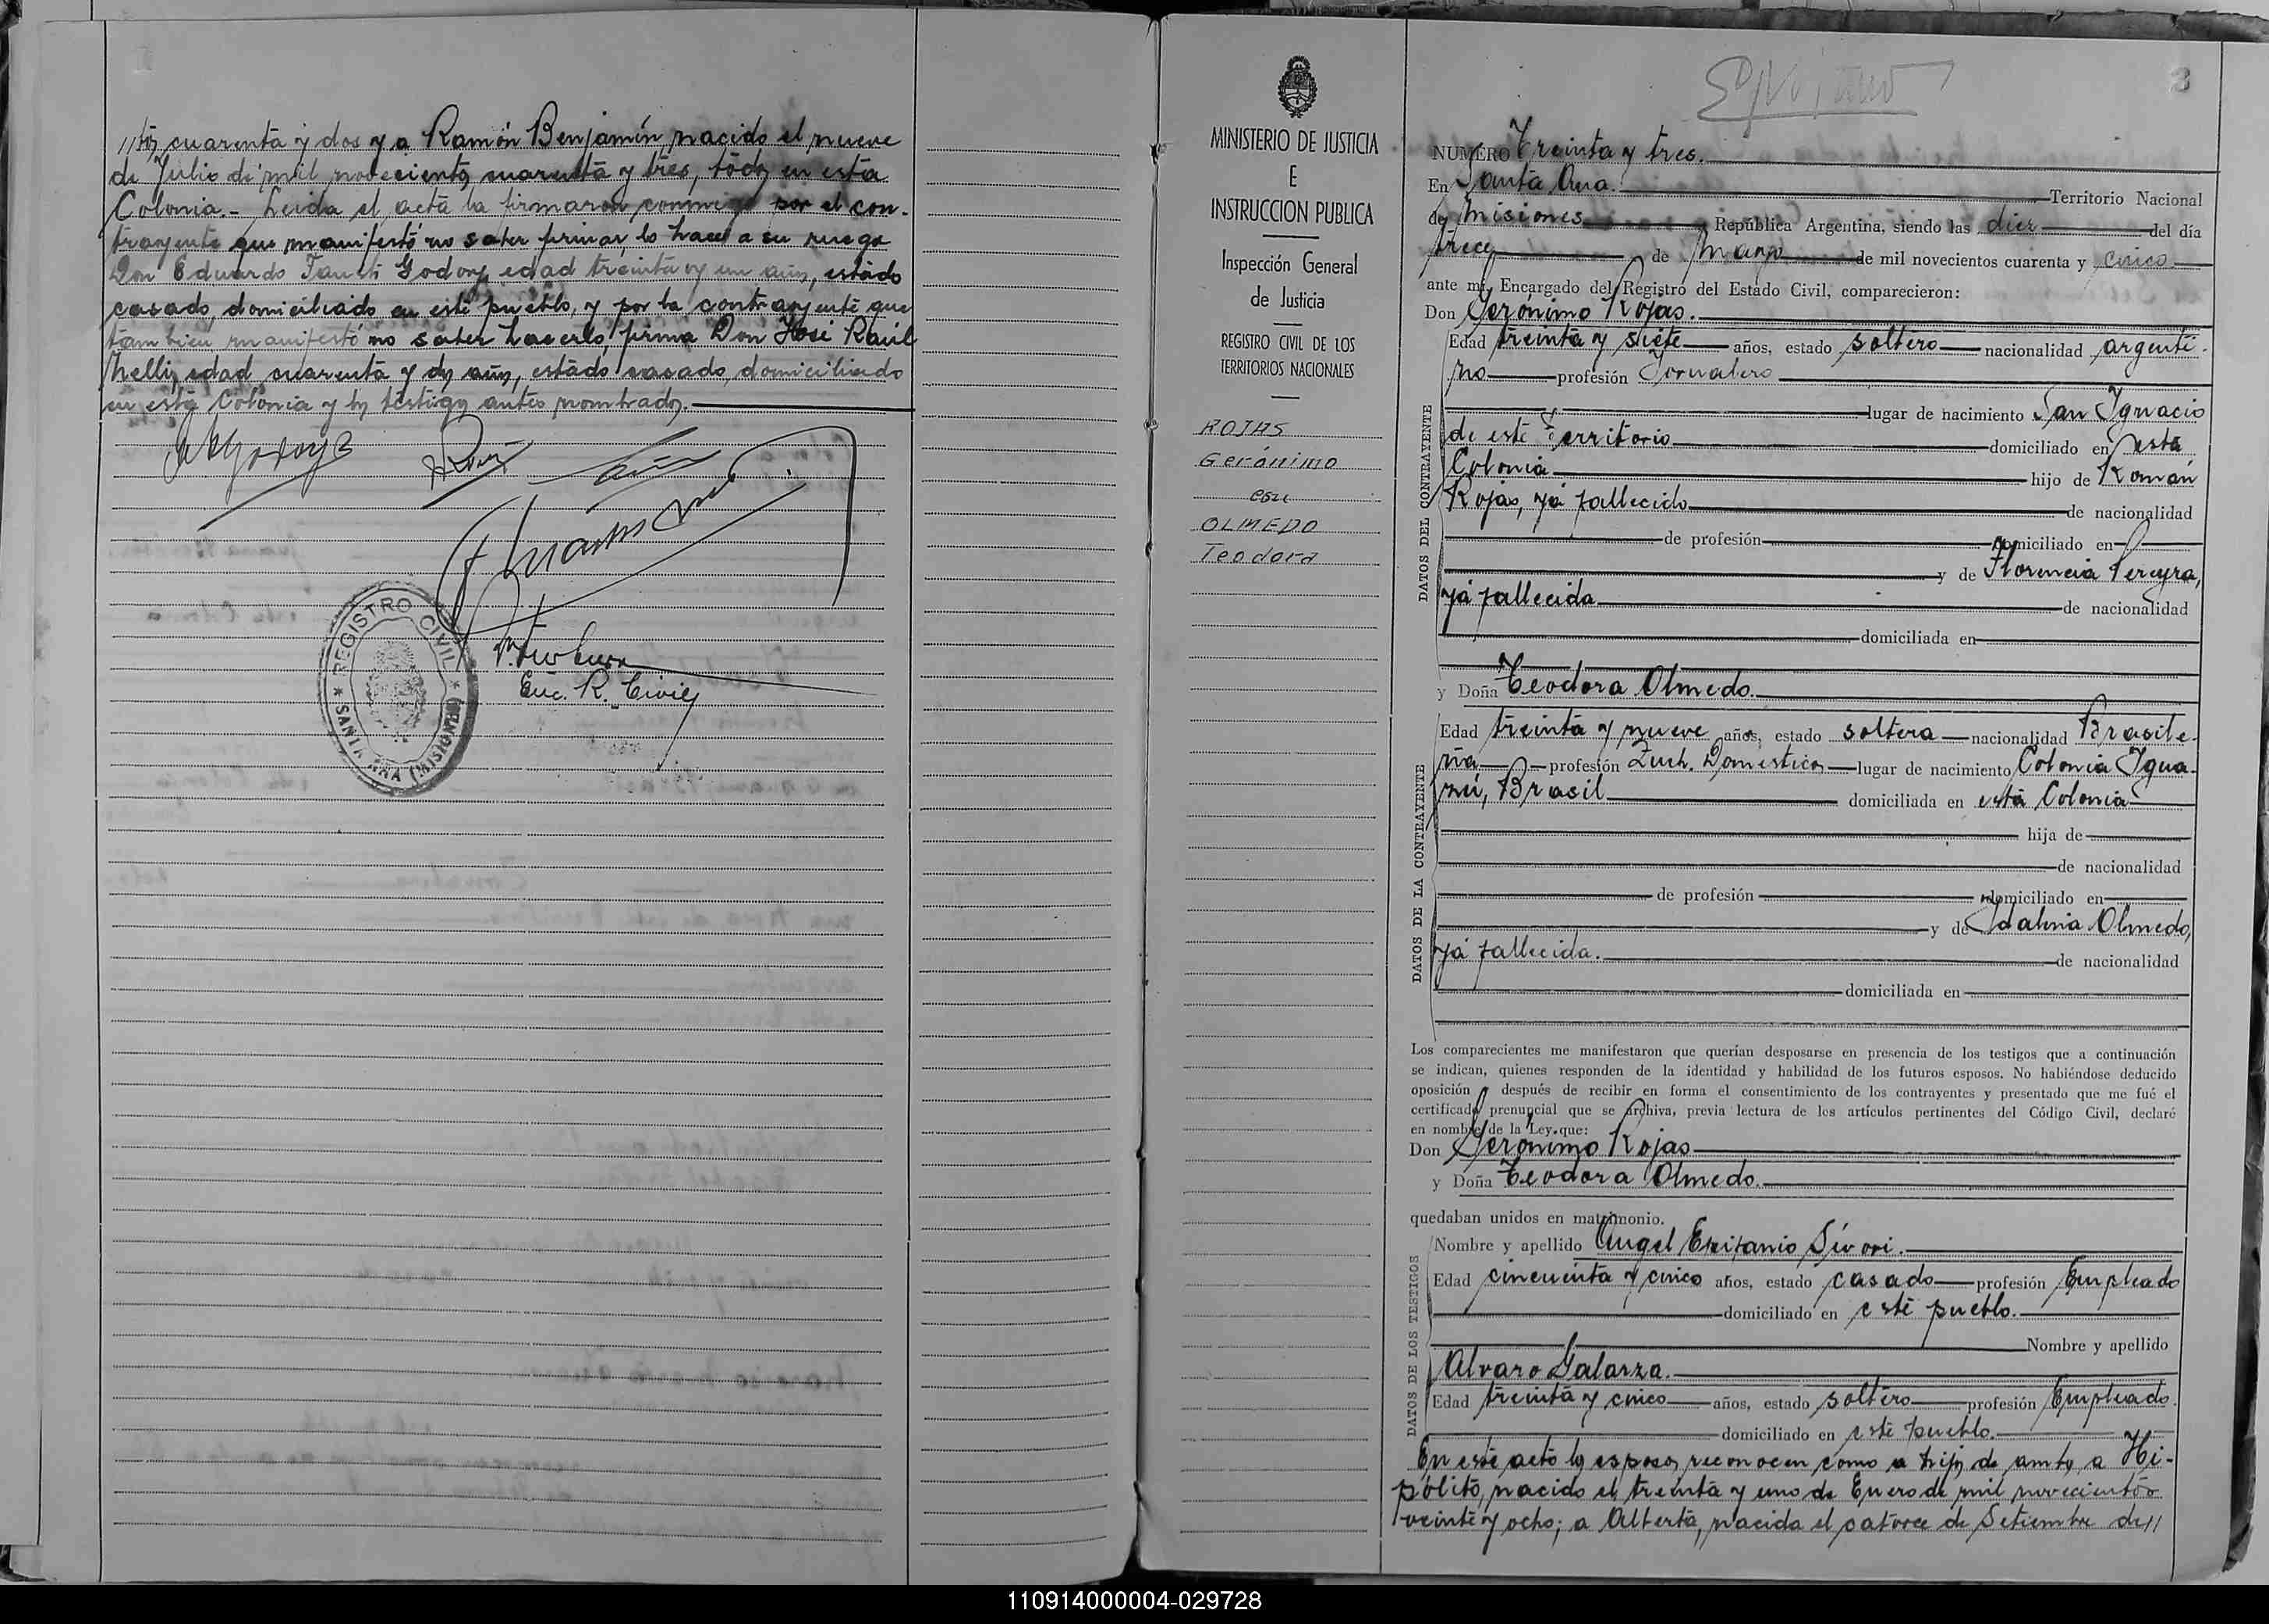 //tos cuarenta y dos y a Ramón Benjamín, nacido el nueve
de Julio de mil novecientos cuarenta y tres, todos en esta
Colonia.- Leida el acta la firmaron conmigo por el con-
trayente que manifestó no saber firmar lo hace a su ruego
Don Eduardo Godoy, edad treinta y un años, estado
casado, domiciliado en este pueblo, y por la contrayente que
tambien manifestó no saber hacerlo, firma Don José Raúl
edad cuarenta y dos años, estado casado, domiciliado
en esta Colonia y los testigos antes nombrados.
Enc. R. Civil
REGISTRO CIVIL
SANTA ANA (MISIONES)
MINISTERIO DE JUSTICIA
E
INSTRUCCION PUBLICA
Inspección General
de Justicia
REGISTRO CIVIL DE LOS
TERRITORIOS NACIONALES
ROJAS
Gerónimo
con
OLMEDO
Teodora
3
NUMERO Treinta y tres.
En Santa Ana. Territorio Nacional
de Misiones República Argentina, siendo las diez del día
trece de Marzo de mil novecientos cuarenta y cinco
ante mí, Encargado del Registro del Estado Civil, comparecieron:
Don Gerónimo Rojas.
DATOS DEL CONTRAYENTE
Edad treinta y siete años, estado soltero nacionalidad argenti-
no profesión Jornalero
lugar de nacimiento San Ignacio
de este Territorio domiciliado en esta
Colonia hijo de Román
Rojas, ya fallecido de nacionalidad
de profesión domiciliado en
y de Florencia Pereyra,
ya fallecida de nacionalidad
domiciliada en
y Doña Teodora Olmedo.
DATOS DE LA CONTRAYENTE
Edad treinta y nueve años, estado soltera nacionalidad Brasile-
ña profesión Queh. Domésticos lugar de nacimiento Colonia Igua-
zú, Brasil domiciliada en esta Colonia
hija de
de nacionalidad
de profesión domiciliado en
y de Idalina Olmedo,
ya fallecida. de nacionalidad
domiciliada en
Los comparecientes me manifestaron que querían desposarse en presencia de los testigos que a continuación
se indican, quienes responden de la identidad y habilidad de los futuros esposos. No habiéndose deducido
oposición y después de recibir en forma el consentimiento de los contrayentes y presentado que me fué el
certificado prenupcial que se archiva, previa lectura de los artículos pertinentes del Código Civil, declaré
en nombre de la Ley que:
Don Gerónimo Rojas
y Doña Teodora Olmedo.
quedaban unidos en matrimonio.
DATOS DE LOS TESTIGOS
Nombre y apellido Angel Epifanio Sívori.
Edad cincuenta y cinco años, estado casado profesión Empleado
domiciliado en este pueblo.
Nombre y apellido
Alvaro Galarza.
Edad treinta y cinco años, estado soltero profesión Empleado.
domiciliado en este pueblo.
En este acto los esposos reconocen como a hijos de ambos a Hi-
pólito, nacido el treinta y uno de Enero de mil novecientos
veinte y ocho; a Alberta, nacida el catorce de Setiembre de//
110914000004-029728